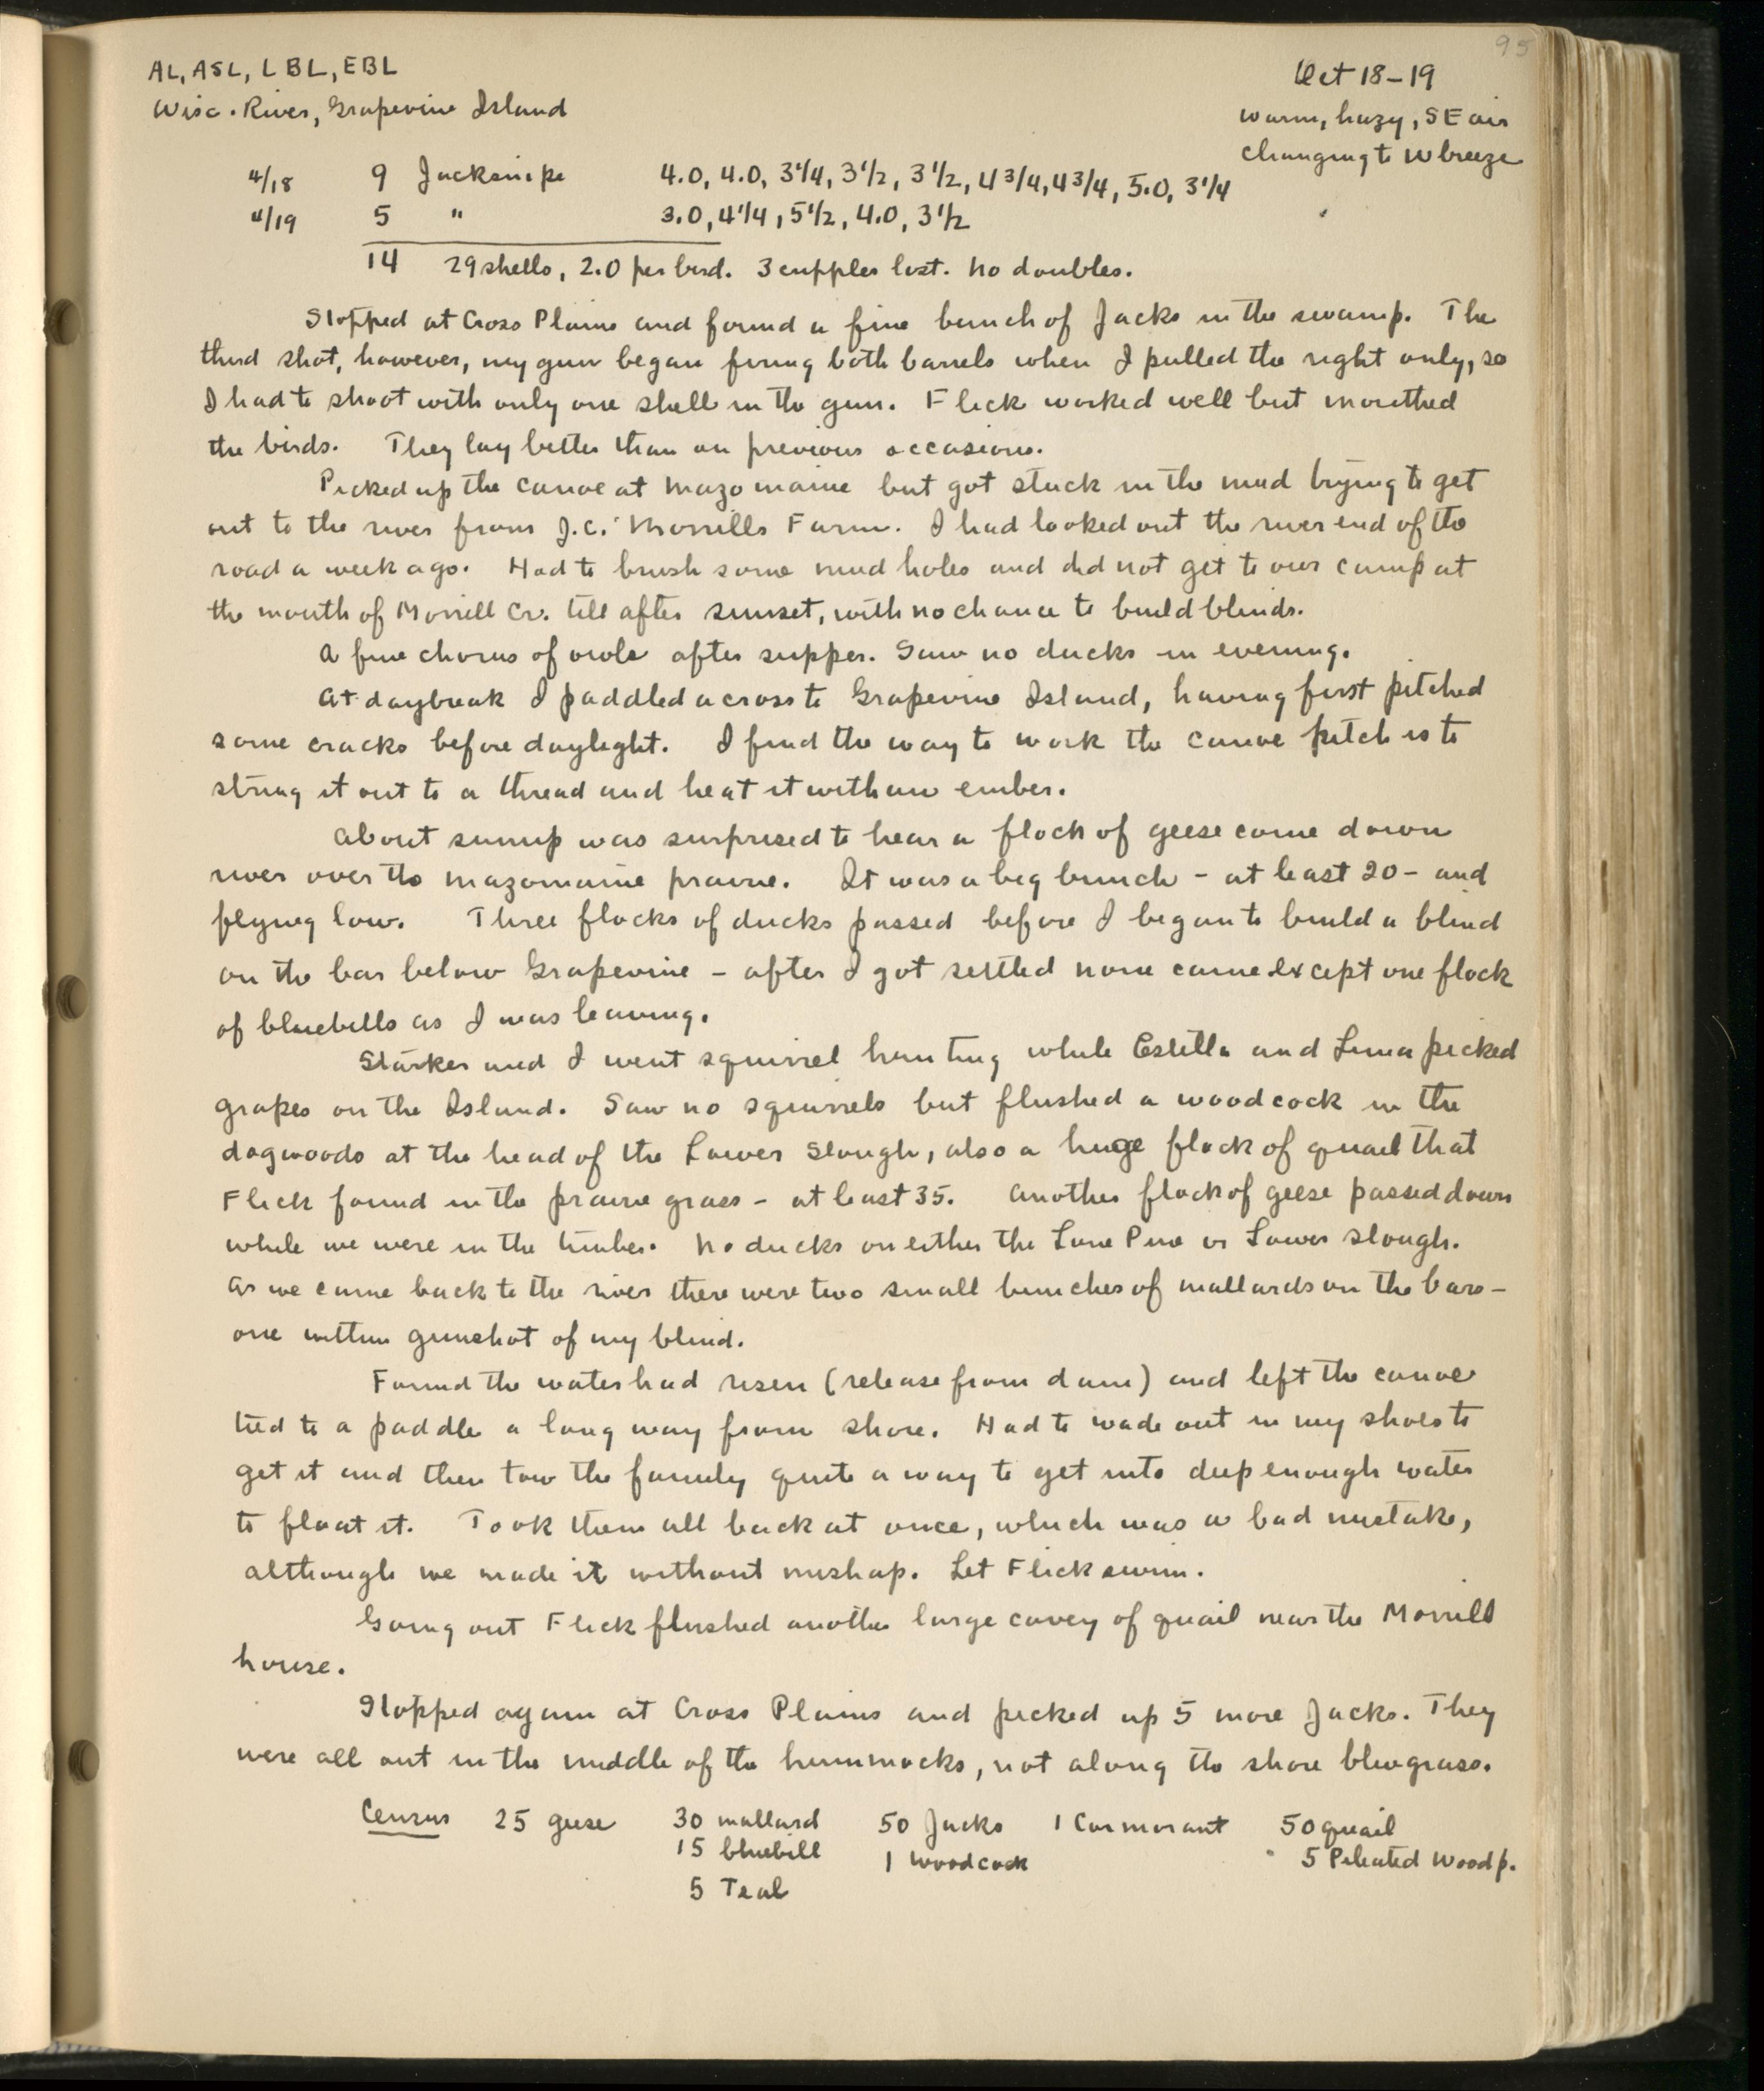 95
AL, ASL, LBL, EBL
Oct 18-19
Wisc. River, Grapevine Island
warm, hazy, SE air
changing to W breeze
/18 9 Jacksnipe 4.0, 4.0, 3 1/4, 3 1/2, 3 1/2, 4 3/4, 4 3/4, 5.0, 3 1/4
/19 5 " 3.0, 4 1/4, 5 1/2, 4.0, 3 1/2
14 29 shells, 2.0 per bird. 3 cripples lost. No doubles.
Stopped at Cross Plains and found a fine bunch of Jacks in the swamp. The
third shot, however, my gun began firing both barrels when I pulled the right only, so
I had to shoot with only one shell in the gun. Flick worked well but mouthed
the birds. They lay better than on previous occasions.
Picked up the canoe at Mazomanie but got stuck in the mud trying to get
out to the river from J.C. Morrills Farm. I had looked out the river end of the
road a week ago. Had to brush some mud holes and did not get to our camp at
the mouth of Morrill Cr. till after sunset, with no chance to build blinds.
A fine chorus of owls after supper. Saw no ducks in evening.
At daybreak I paddled across to Grapevine Island, having first pitched
some cracks before daylight. I find the way to work the canoe pitch is to
string it out to a thread and heat it with an ember.
About sunup was surprised to hear a flock of geese come down
river over the Mazomanie prairie. It was a big bunch - at least 20 - and
flying low. Three flocks of ducks passed before I began to build a blind
on the bar below Grapevine - after I got settled none came except one flock
of bluebills as I was leaving.
Starker and I went squirrel hunting while Estella and Luna picked
grapes on the Island. Saw no squirrels but flushed a woodcock in the
dogwoods at the head of the Lower Slough, also a huge flock of quail that
Flick found in the prairie grass - at least 35. Another flock of geese passed down
while we were in the timber. No ducks on either the Lone Pine or Lower Slough.
As we came back to the river there were two small bunches of mallards on the bars -
one within gunshot of my blind.
Found the water had risen (release from dam) and left the canoe
tied to a paddle a long way from shore. Had to wade out in my shoes to
get it and then tow the family quite a way to get into deep enough water
to float it. Took them all back at once, which was a bad mistake,
although we made it without mishap. Let Flick swim.
Going out Flick flushed another large covey of quail near the Morrill
house.
Stopped again at Cross Plains and picked up 5 more Jacks. They
were all out in the middle of the hummocks, not along the shore bluegrass.
Census 25 geese 30 mallard 50 Jacks 1 Cormorant 50 quail
15 bluebill 1 woodcock 5 Pileated Woodp.
5 Teal